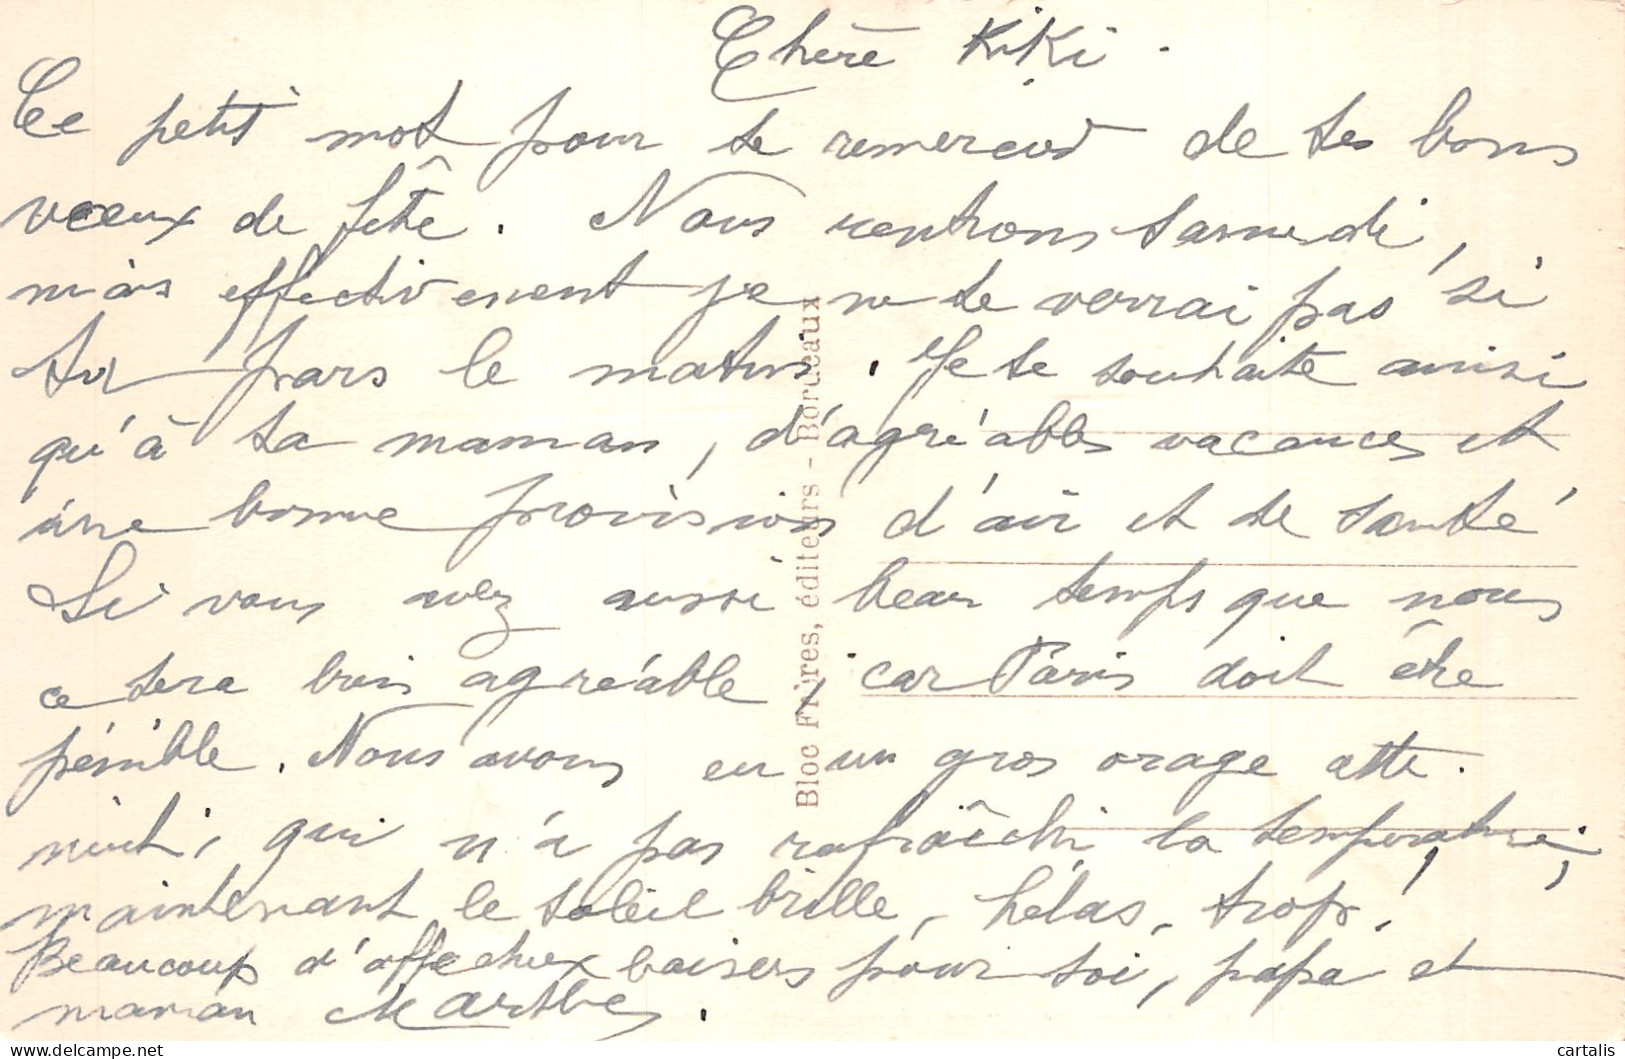 Chère Kiki.
Ce petit mot pour te remercier de tes bons
voeux de fête. Nous rentrons samedi,
mais effectivement je ne te verrai pas si
tu pars le matin. Je te souhaite ainsi
qu'à ta maman, d'agréables vacances et
une bonne provision d'air et de santé
Si vous avez aussi beau temps que nous
ce sera bien agréable, car Paris doit être
pénible. Nous avons eu un gros orage cette
nuit, qui n'a pas rafraîchi la température;
maintenant le soleil brille, hélas, trop!
Beaucoup d'affectueux baisers pour toi, papa et
maman Marthe.
Bloc Frères, éditeurs - Bordeaux
cartalis